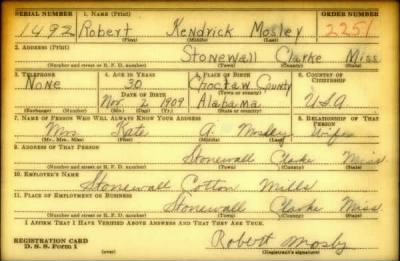 SERIAL NUMBER 1. NAME (Print) ORDER NUMBER
1492 Robert Kendrick Mosley 2251
(First) (Middle) (Last)
2. ADDRESS (Print)
Stonewall Clarke Miss
(Number and street or R. F. D. number) (Town) (County) (State)
3. TELEPHONE 4. AGE IN YEARS 5. PLACE OF BIRTH 6. COUNTRY OF CITIZENSHIP
None 30 Choctaw County
DATE OF BIRTH (Town or county)
Nov. 2 1909 Alabama USA
(Exchange) (Number) (Mo.) (Day) (Yr.) (State or country)
7. NAME OF PERSON WHO WILL ALWAYS KNOW YOUR ADDRESS 8. RELATIONSHIP OF THAT PERSON
Mrs. Kate A. Mosley Wife
(Mr., Mrs., Miss) (First) (Middle) (Last)
9. ADDRESS OF THAT PERSON
Stonewall Clarke Miss
(Number and street or R. F. D. number) (Town) (County) (State)
10. EMPLOYER'S NAME
Stonewall Cotton Mills
11. PLACE OF EMPLOYMENT OR BUSINESS
Stonewall Clarke Miss.
(Number and street or R. F. D. number) (Town) (County) (State)
I AFFIRM THAT I HAVE VERIFIED ABOVE ANSWERS AND THAT THEY ARE TRUE.
REGISTRATION CARD
D. S. S. Form 1
Robert Mosley
(Registrant's signature)